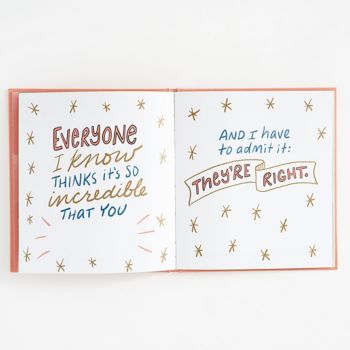 EVERYONE
I know
THINKS it's SO
incredible
THAT YOU
AND I have
to admit it:
THEY'RE RIGHT.